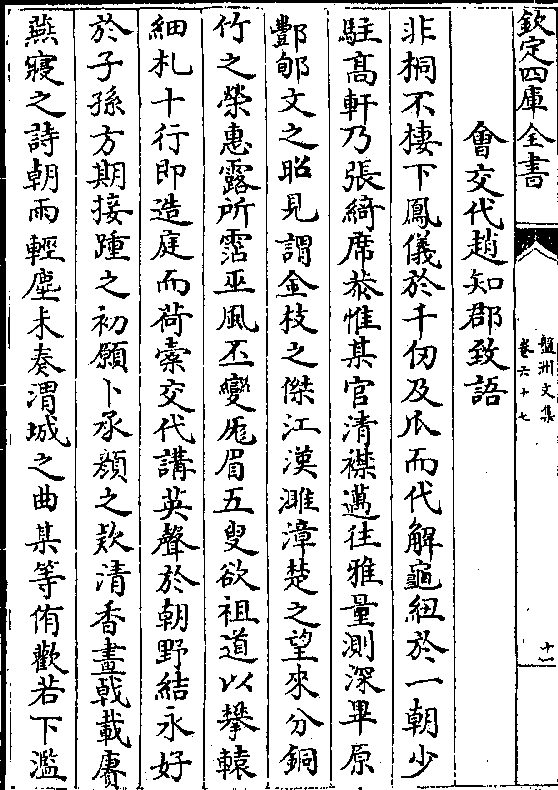 欽定四庫全書
盤洲文集
卷六十七
十一
會交代趙知郡致語
非桐不棲下鳳儀於千仞及瓜而代解龜紐於一朝少
駐髙軒乃張綺席恭惟某官清襟邁往雅量測深畢原
酆郇文之昭見謂金枝之傑江漢濉漳楚之望來分銅
竹之榮惠露所霑巫風丕變厖眉五叟欲祖道以攀轅
細札十行即造庭而荷橐交代講英聲於朝野結永好
於子孫方期接踵之初願卜承顔之欵清香畫㦸載賡
燕寢之詩朝雨輕塵未奏渭城之曲某等侑歡若下濫